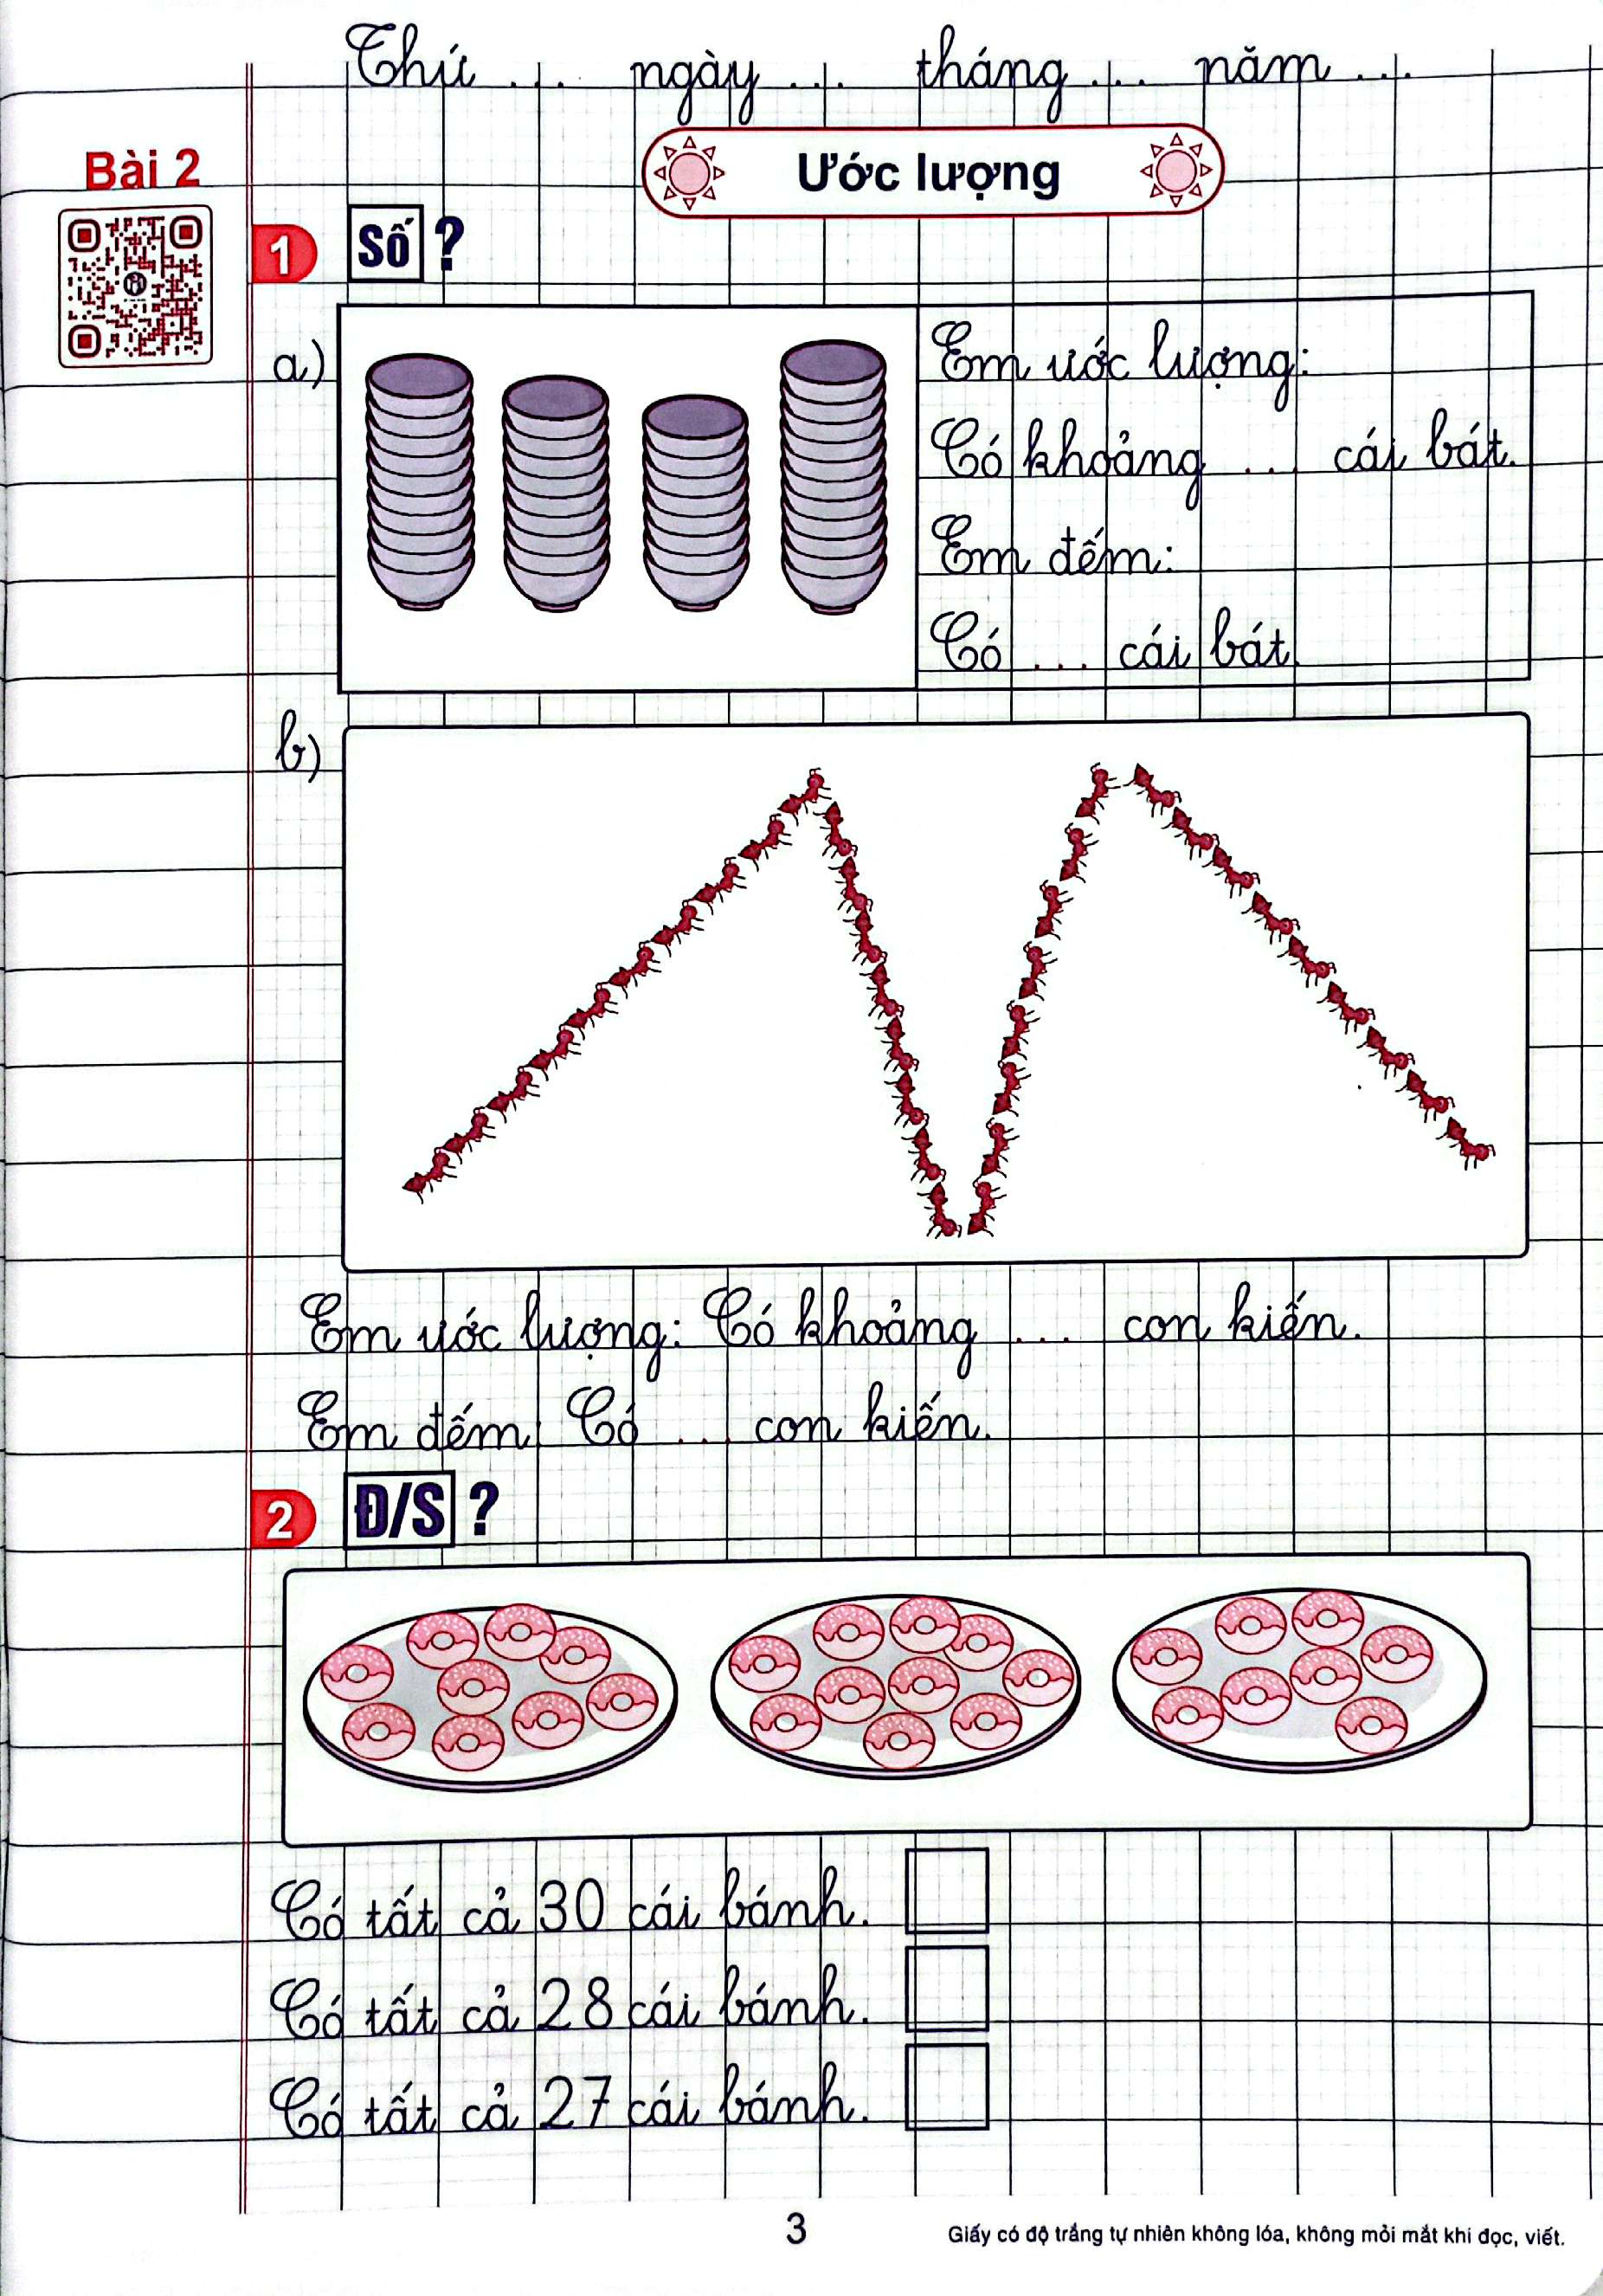 Thứ ... ngày ... tháng ... năm ...
Bài 2
Ước lượng
1 Số ?
a)
Em ước lượng:
Có khoảng ... cái bát.
Em đếm:
Có ... cái bát.
b)
Em ước lượng: Có khoảng ... con kiến.
Em đếm: Có ... con kiến.
2 Đ/S ?
Có tất cả 30 cái bánh.
Có tất cả 28 cái bánh.
Có tất cả 27 cái bánh.
3
Giấy có độ trắng tự nhiên không lóa, không mỏi mắt khi đọc, viết.